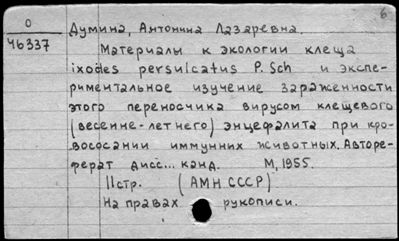 6
О
Ч6337
Думина, Антонина Лазаревна.
Материалы к экологии клеща
ixodes persulcatus P. Sch и экспе-
риментальное изучение зараженности
этого переносчика вирусом клещевого
(весенне-летнего) энцефалита при кро-
вососании иммунных животных. Авторе-
ферат дисс... канд. М, 1955.
11стр. (АМН.СССР)
На правах рукописи.